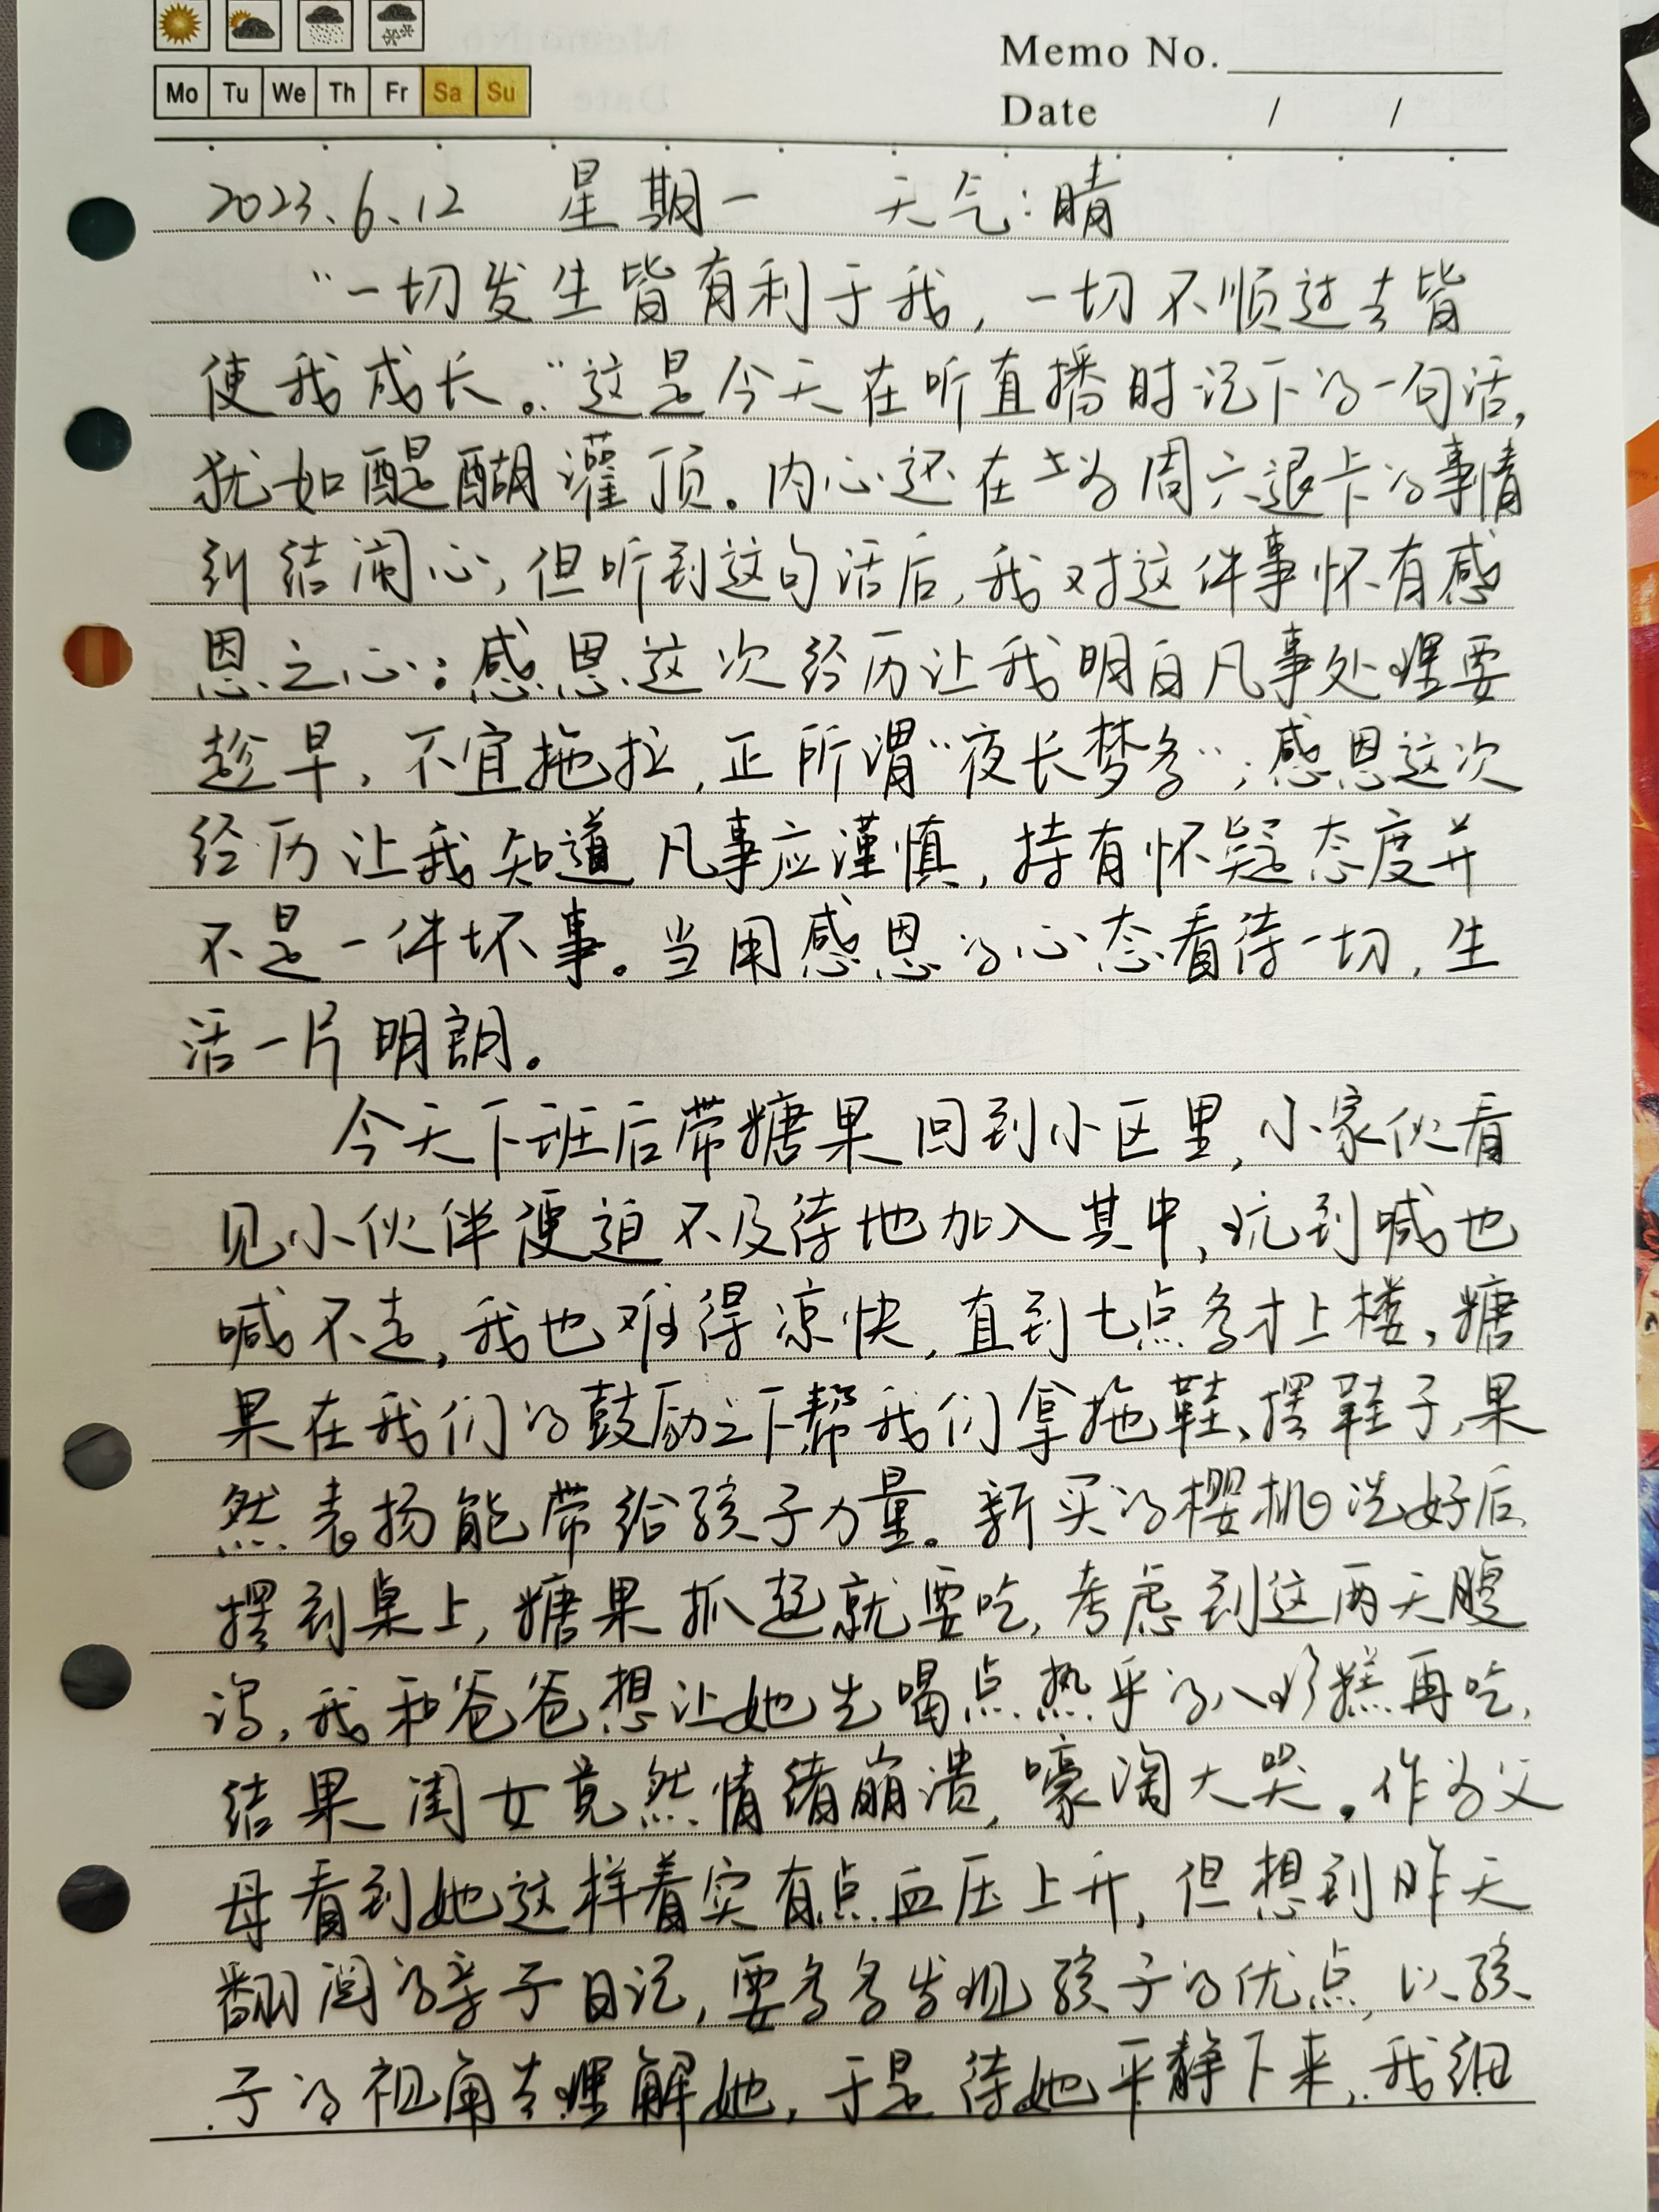 Mo Tu We Th Fr Sa Su
Memo No.
Date / /
2023.6.12 星期一 天气:晴
“一切发生皆有利于我,一切不顺过去皆
使我成长。”这是今天在听直播时记下的一句话,
犹如醍醐灌顶。内心还在为周六退卡的事情
纠结闹心,但听到这句话后,我对这件事怀有感
恩之心:感恩这次经历让我明白凡事处理要
趁早,不宜拖拉,正所谓“夜长梦多”;感恩这次
经历让我知道凡事应谨慎,持有怀疑态度并
不是一件坏事。当用感恩的心态看待一切,生
活一片明朗。
今天下班后带糖果回到小区里,小家伙看
见小伙伴便迫不及待地加入其中,玩到喊也
喊不走,我也难得凉快,直到七点多才上楼,糖
果在我们的鼓励之下帮我们拿拖鞋、摆鞋子,果
然表扬能带给孩子力量。新买的樱桃洗好后
摆到桌上,糖果抓起就要吃,考虑到这两天腹
泻,我和爸爸想让她先喝点热乎的八珍糕再吃,
结果闺女竟然情绪崩溃,嚎淘大哭。作为父
母看到她这样着实有点血压上升,但想到昨天
翻阅的亲子日记,要多多发现孩子的优点,以孩
子的视角去理解她,于是待她平静下来,我细